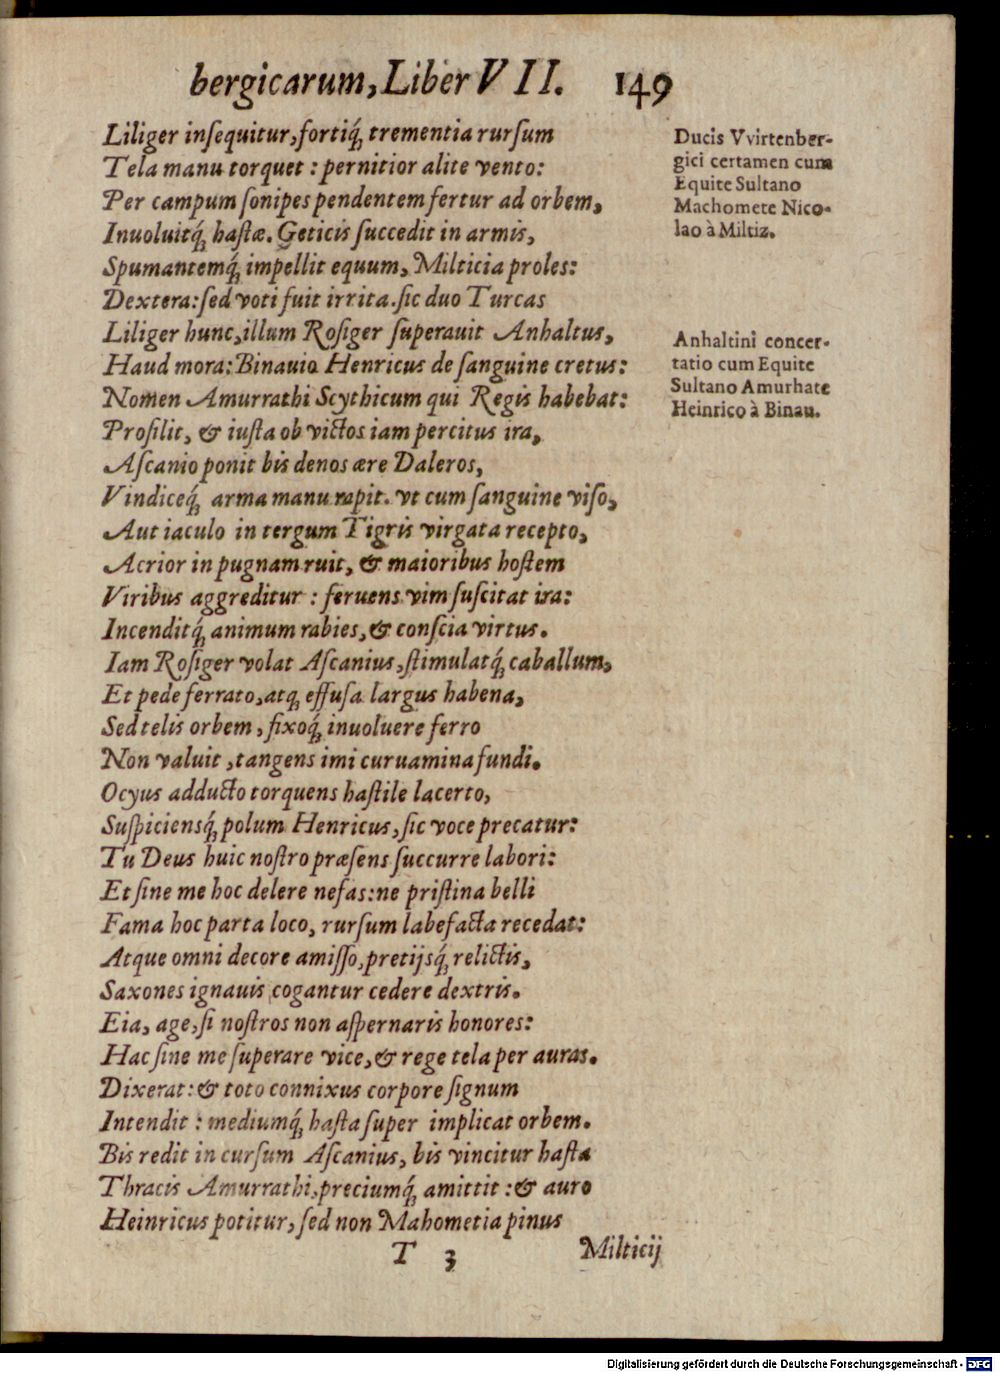 bergicarum, Liber VII. 149
Liliger inſequitur, fortiq́; trementia rurſum
Tela manu torquet : pernitior alite vento:
Per campum ſonipes pendentem fertur ad orbem,
Inuoluitq́; haſtæ. Geticis ſuccedit in armis,
Spumantemq́; impellit equum, Milticia proles:
Dextera: ſed voti fuit irrita. ſic duo Turcas
Liliger hunc, illum Roſiger ſuperauit Anhaltus,
Haud mora: Binauio Henricus de ſanguine cretus:
Nomen Amurrathi Scythicum qui Regis habebat:
Proſilit, & iuſta ob victos iam percitus ira,
Aſcanio ponit bis denos ære Daleros,
Vindiceq́; arma manu rapit. vt cum ſanguine viſo,
Aut iaculo in tergum Tigris virgata recepto,
Acrior in pugnam ruit, & maioribus hoſtem
Viribus aggreditur : feruens vim ſuſcitat ira:
Incenditq́; animum rabies, & conſcia virtus.
Iam Roſiger volat Aſcanius, ſtimulatq́; caballum,
Et pede ferrato, atq; effuſa largus habena,
Sed telis orbem, fixoq́; inuoluere ferro
Non valuit, tangens imi curuamina fundi.
Ocyus adducto torquens haſtile lacerto,
Suſpiciensq́; polum Henricus, ſic voce precatur:
Tu Deus huic noſtro præſens ſuccurre labori:
Et ſine me hoc delere nefas: ne priſtina belli
Fama hoc parta loco, rurſum labefacta recedat:
Atque omni decore amiſſo, pretijsq́; relictis,
Saxones ignauis cogantur cedere dextris.
Eia, age, ſi noſtros non aſpernaris honores:
Hac ſine me ſuperare vice, & rege tela per auras.
Dixerat: & toto connixus corpore ſignum
Intendit : mediumq́; haſta ſuper implicat orbem.
Bis redit in curſum Aſcanius, bis vincitur haſta
Thracis Amurrathi, preciumq́; amittit : & auro
Heinricus potitur, ſed non Mahometia pinus
T 3 Milticij
Ducis Vvirtenber-
gici certamen cum
Equite Sultano
Machomete Nico-
lao à Miltiz.
Anhaltini concer-
tatio cum Equite
Sultano Amurhate
Heinrico à Binau.
Digitalisierung gefördert durch die Deutsche Forschungsgemeinschaft - DFG